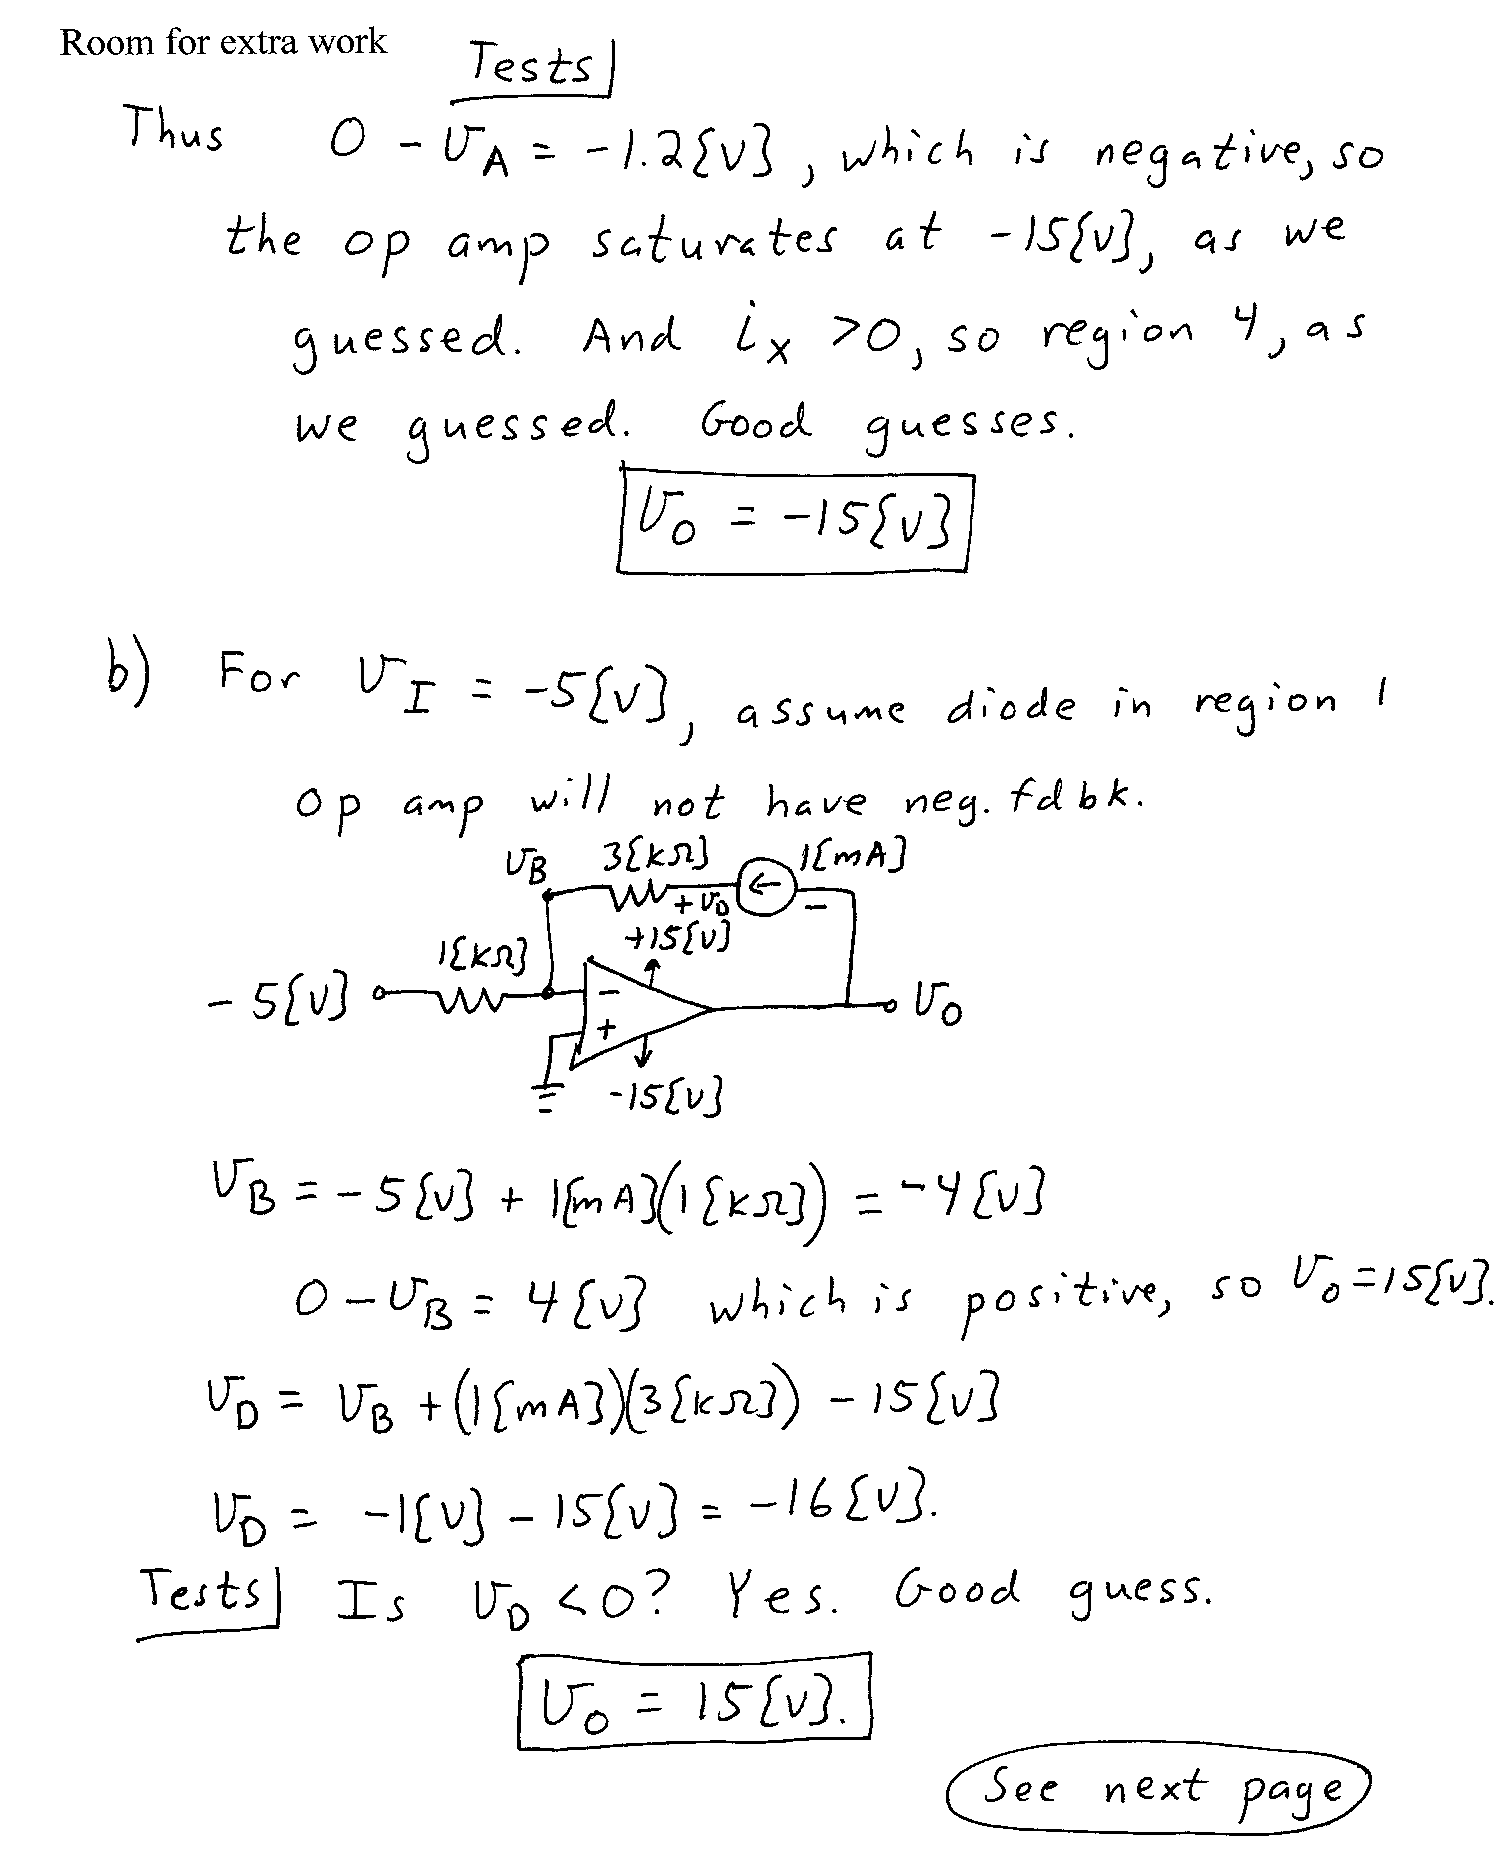 Room for extra work
Tests
Thus 0 - v_A = -1.2{V}, which is negative, so
the op amp saturates at -15{V}, as we
guessed. And i_X >0, so region 4, as
we guessed. Good guesses.
v_O = -15{V}
b) For v_I = -5{V}, assume diode in region 1
op amp will not have neg. fdbk.
v_B 3{kΩ} 1{mA}
+ v_D -
+15{V}
1{kΩ}
-5{V} - v_O
+
-15{V}
v_B = -5{V} + 1{mA}(1{kΩ}) = -4{V}
0 - v_B = 4{V} which is positive, so v_O = 15{V}.
v_D = v_B + (1{mA})(3{kΩ}) - 15{V}
v_D = -1{V} - 15{V} = -16{V}.
Tests Is v_D <0? Yes. Good guess.
v_O = 15{V}.
See next page